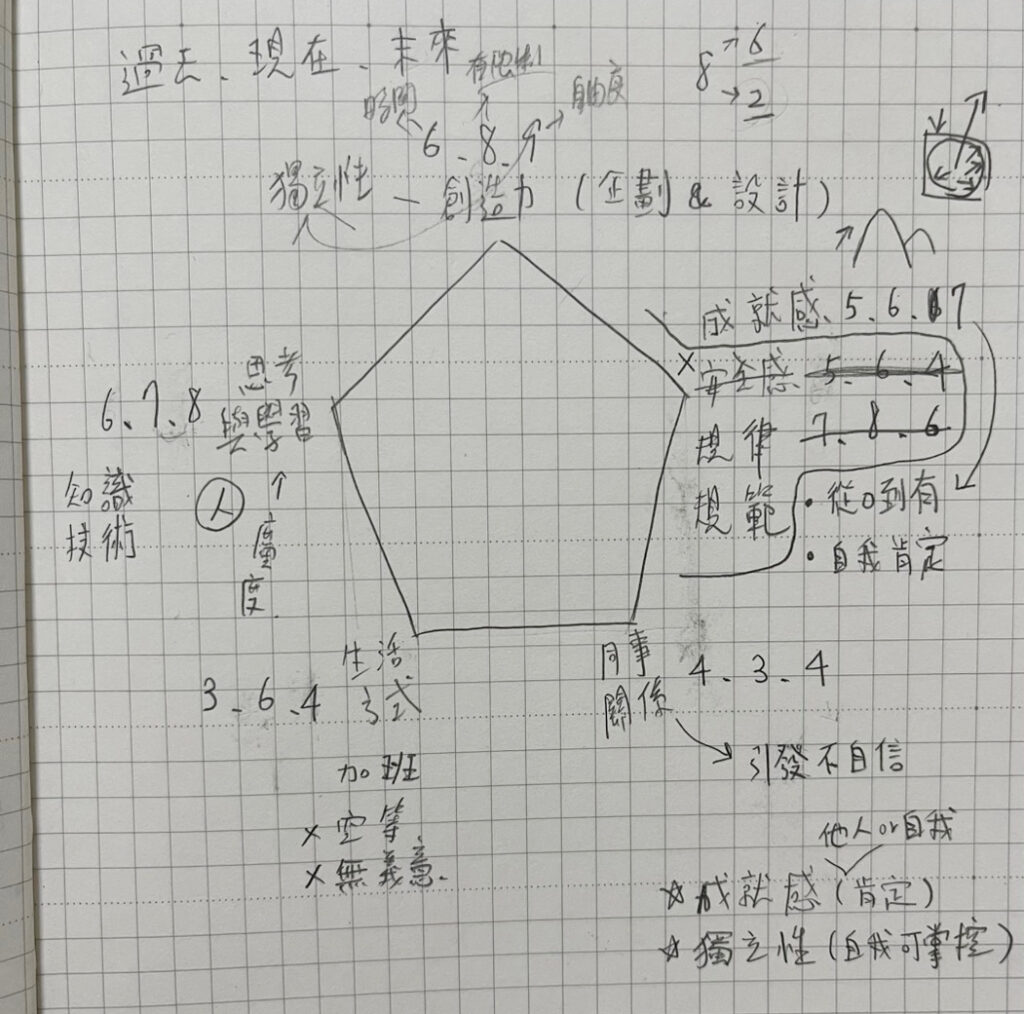 過去、現在、未來
有限制
時間
自由度
8 → 6
→ 2
6、8、9
獨立性 — 創造力（企劃 & 設計）
成就感、5、6、7
× 安全感 5、6、4
規律 7、8、6
規範
・從0到有
・自我肯定
6、7、8
思考
與學習
知識
技術
人
↑
度
生活
方式
3、6、4
加班
× 空等
× 無義意.
同事
關係
4、3、4
引發不自信
他人or自我
☆ 成就感（肯定）
☆ 獨立性（自我可掌控）